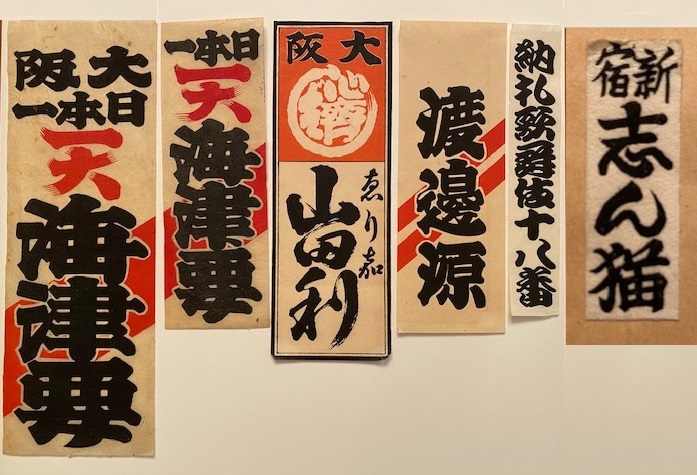 大阪
日本一
天
海津要
日本一
天
海津要
大阪
ゑり嘉
山田利
渡邊源
納札歌舞伎十八番
新宿
志ん猫